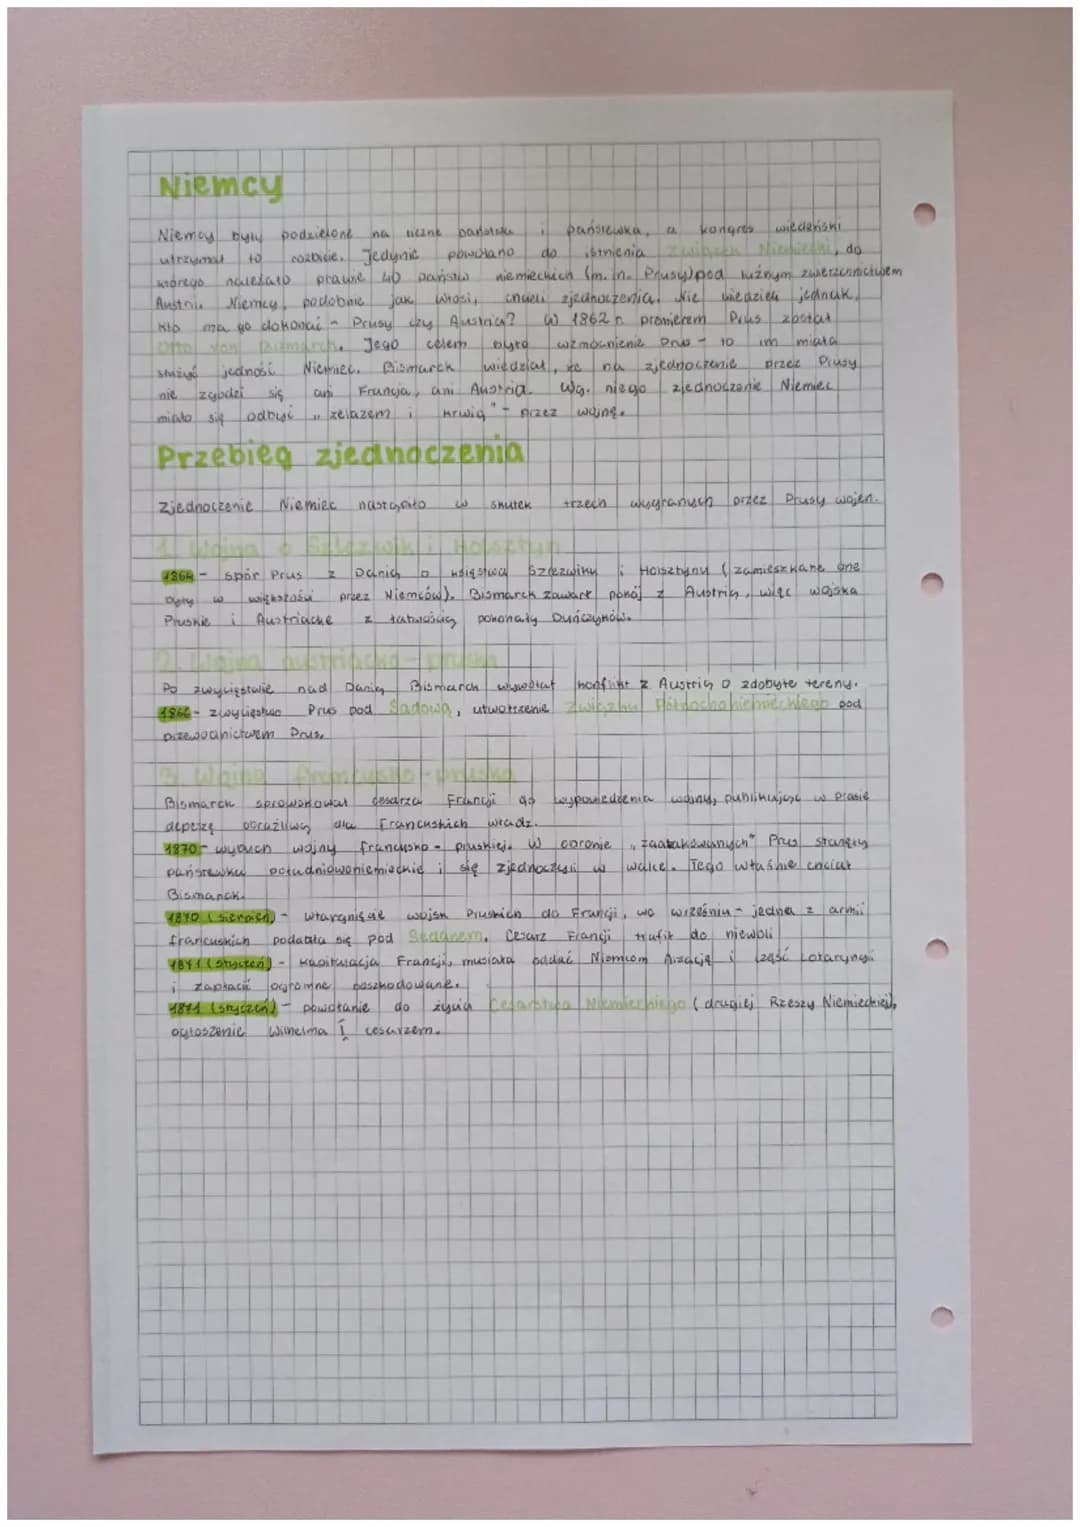 Niemcy
Niemcy były podzielone na liczne państwa i państewka, a kongres wiedeński
utrzymał to rozbicie. Jedynie powołano do istnienia Związek Niemiecki, do
którego należało prawie 40 państw niemieckich (m. in. Prusy) pod luźnym zwierzchnictwem
Austrii. Niemcy, podobnie jak Włosi, chcieli zjednoczenia. Nie wiedzieli jednak,
kto ma go dokonać - Prusy czy Austria? W 1862 r. premierem Prus został
Otto von Bismarck. Jego celem było wzmocnienie Prus - to im miała
służyć jedność Niemiec. Bismarck wiedział, że na zjednoczenie przez Prusy
nie zgodzi się ani Francja, ani Austria. Wg. niego zjednoczenie Niemiec
miało się odbyć „żelazem i krwią" - przez wojnę.
Przebieg zjednoczenia
Zjednoczenie Niemiec nastąpiło w skutek trzech wygranych przez Prusy wojen.
1. Wojna o Szlezwik i Holsztyn
1864 - spór Prus z Danią o księstwa Szlezwiku i Holsztynu (zamieszkane one
były w większości przez Niemców). Bismarck zawarł pokój z Austrią, więc wojska
Pruskie i Austriackie z łatwością pokonały Duńczyków.
2. Wojna austriacko - pruska
Po zwycięstwie nad Danią Bismarck wywołał konflikt z Austrią o zdobyte tereny.
1866 - zwycięstwo Prus pod Sadową, utworzenie Związku Północnoniemieckiego pod
przewodnictwem Prus.
3. Wojna francusko - pruska
Bismarck sprowokował cesarza Francji do wypowiedzenia wojny, publikując w prasie
depeszę obraźliwą dla Francuskich władz.
1870 - wybuch wojny francusko - pruskiej. W obronie „zaatakowanych" Prus stanęły
państewka południowoniemieckie i się zjednoczyli w walce. Tego właśnie chciał
Bismarck.
1870 (sierpień) - wtargnięcie wojsk Pruskich do Francji, we wrześniu - jedna z armii
francuskich poddała się pod Sedanem. Cesarz Francji trafił do niewoli
1871 (styczeń) - kapitulacja Francji, musiała oddać Niemcom Alzację i część Lotaryngii
i zapłacić ogromne odszkodowanie.
1871 (styczeń) - powołanie do życia Cesarstwa Niemieckiego (drugiej Rzeszy Niemieckiej),
ogłoszenie Wilhelma I cesarzem.